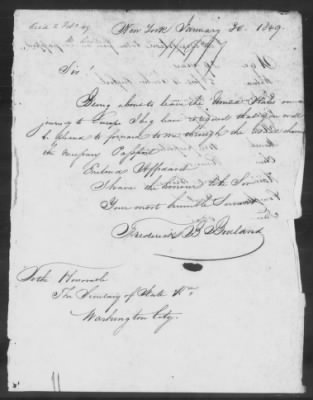 New York January 30. 1849.
Sir!
Being about to leave the United States on a
journey to Europe I beg leave to request that you will
be pleased to forward to me through the
the necessary Passport
Enclosed Affidavit
I have the honour to be Sir
Your most humble Servant
Frederick B
To the Honorable
The Secretary of State &c
Washington City.